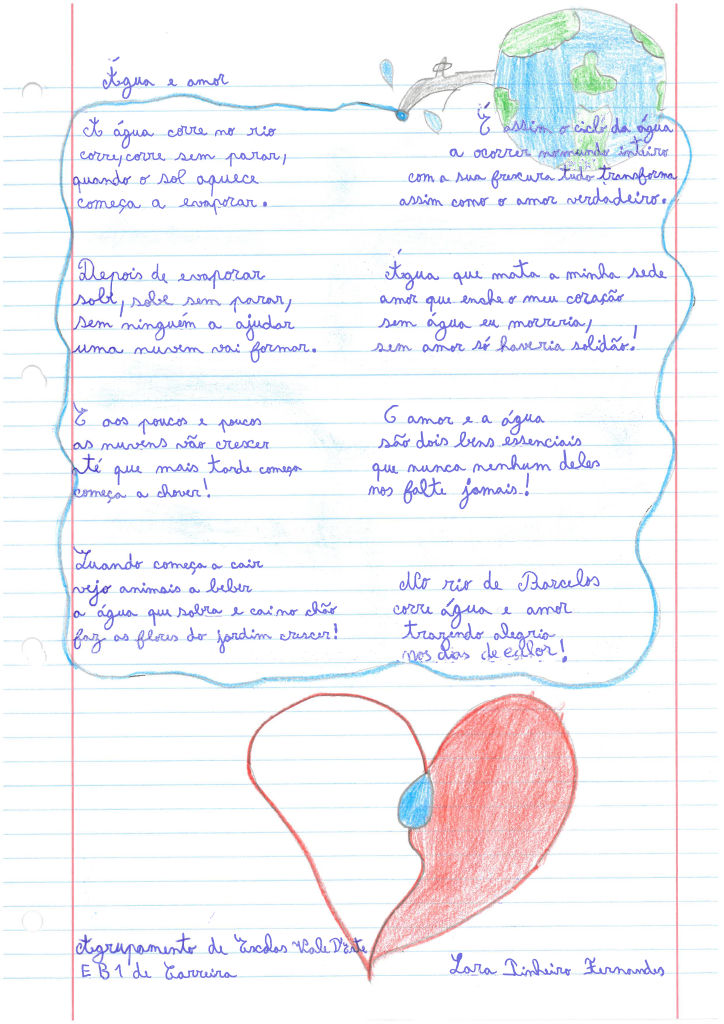 Água e amor
A água corre no rio
corre, corre sem parar,
quando o sol aquece
começa a evaporar.
Depois de evaporar
sobe, sobe sem parar,
sem ninguém a ajudar
uma nuvem vai formar.
E aos poucos e poucos
as nuvens vão crescer
até que mais tarde começa
começa a chover!
Quando começa a cair
vejo animais a beber
a água que sobra e cai no chão
faz as flores do jardim crescer!
É assim o ciclo da água
a ocorrer no mundo inteiro
com a sua frescura tudo transforma
assim como o amor verdadeiro.
Água que mata a minha sede
amor que enche o meu coração
sem água eu morreria,
sem amor só haveria solidão!
O amor e a água
são dois bens essenciais
que nunca nenhum deles
nos falte jamais!
No rio de Barcelos
corre água e amor
trazendo alegria
nos dias de calor!
Agrupamento de Escolas Vale D'Este
EB1 de Carreira
Lara Pinheiro Fernandes